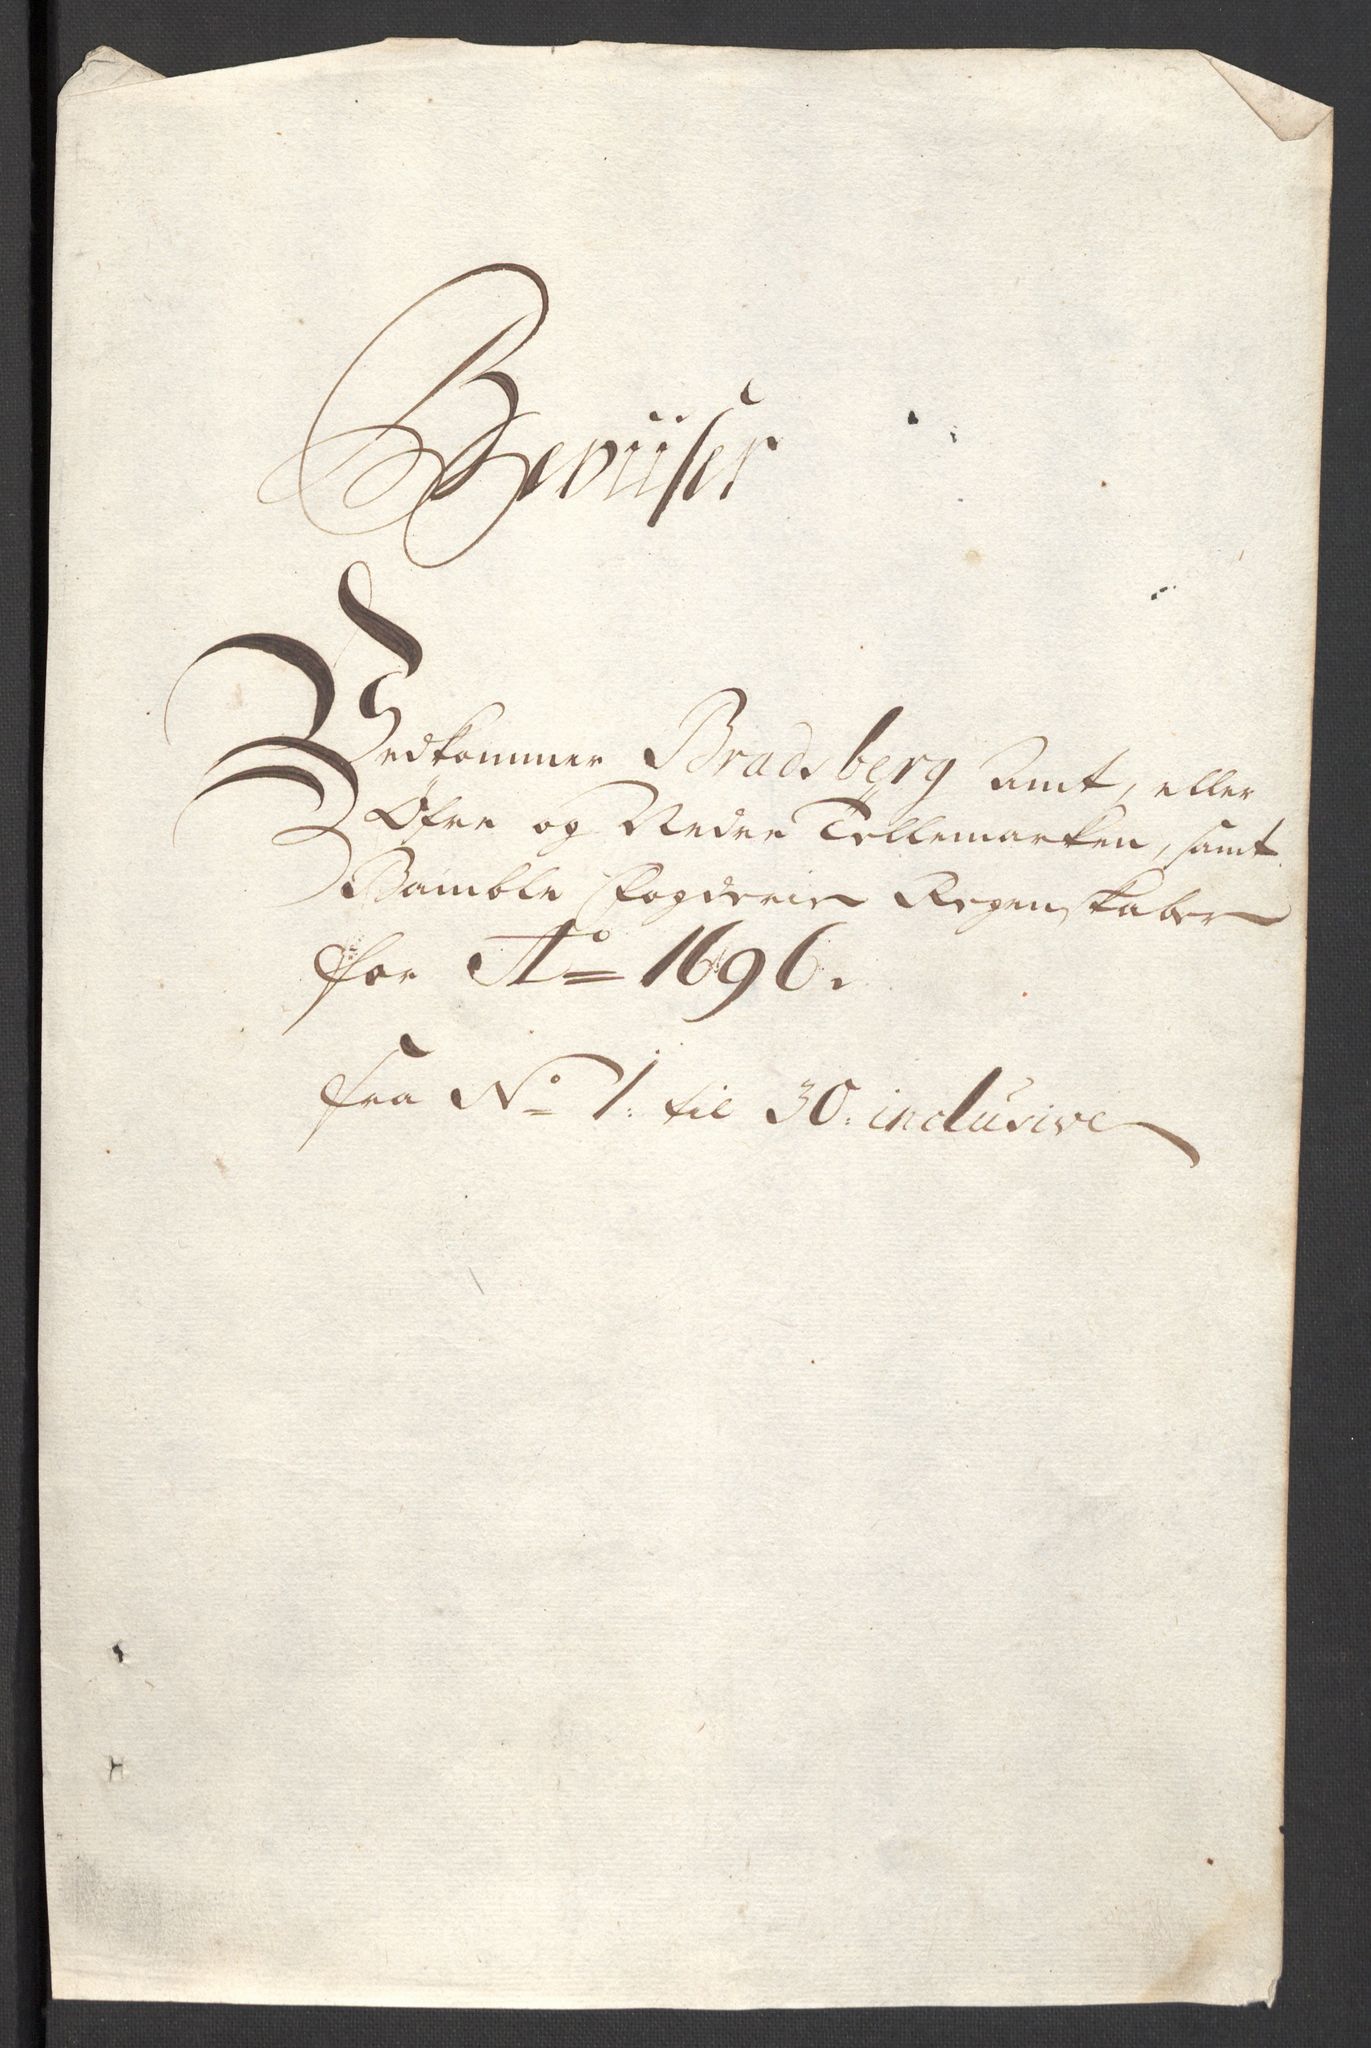 Beviiser
Vedkommer Bradsberg Amt, eller
Øfre og Nedre Tellemarken, samt
Bamble Fogderies Regenskaber
for Aº 1696.
fra Nº 1. til 30. inclusive